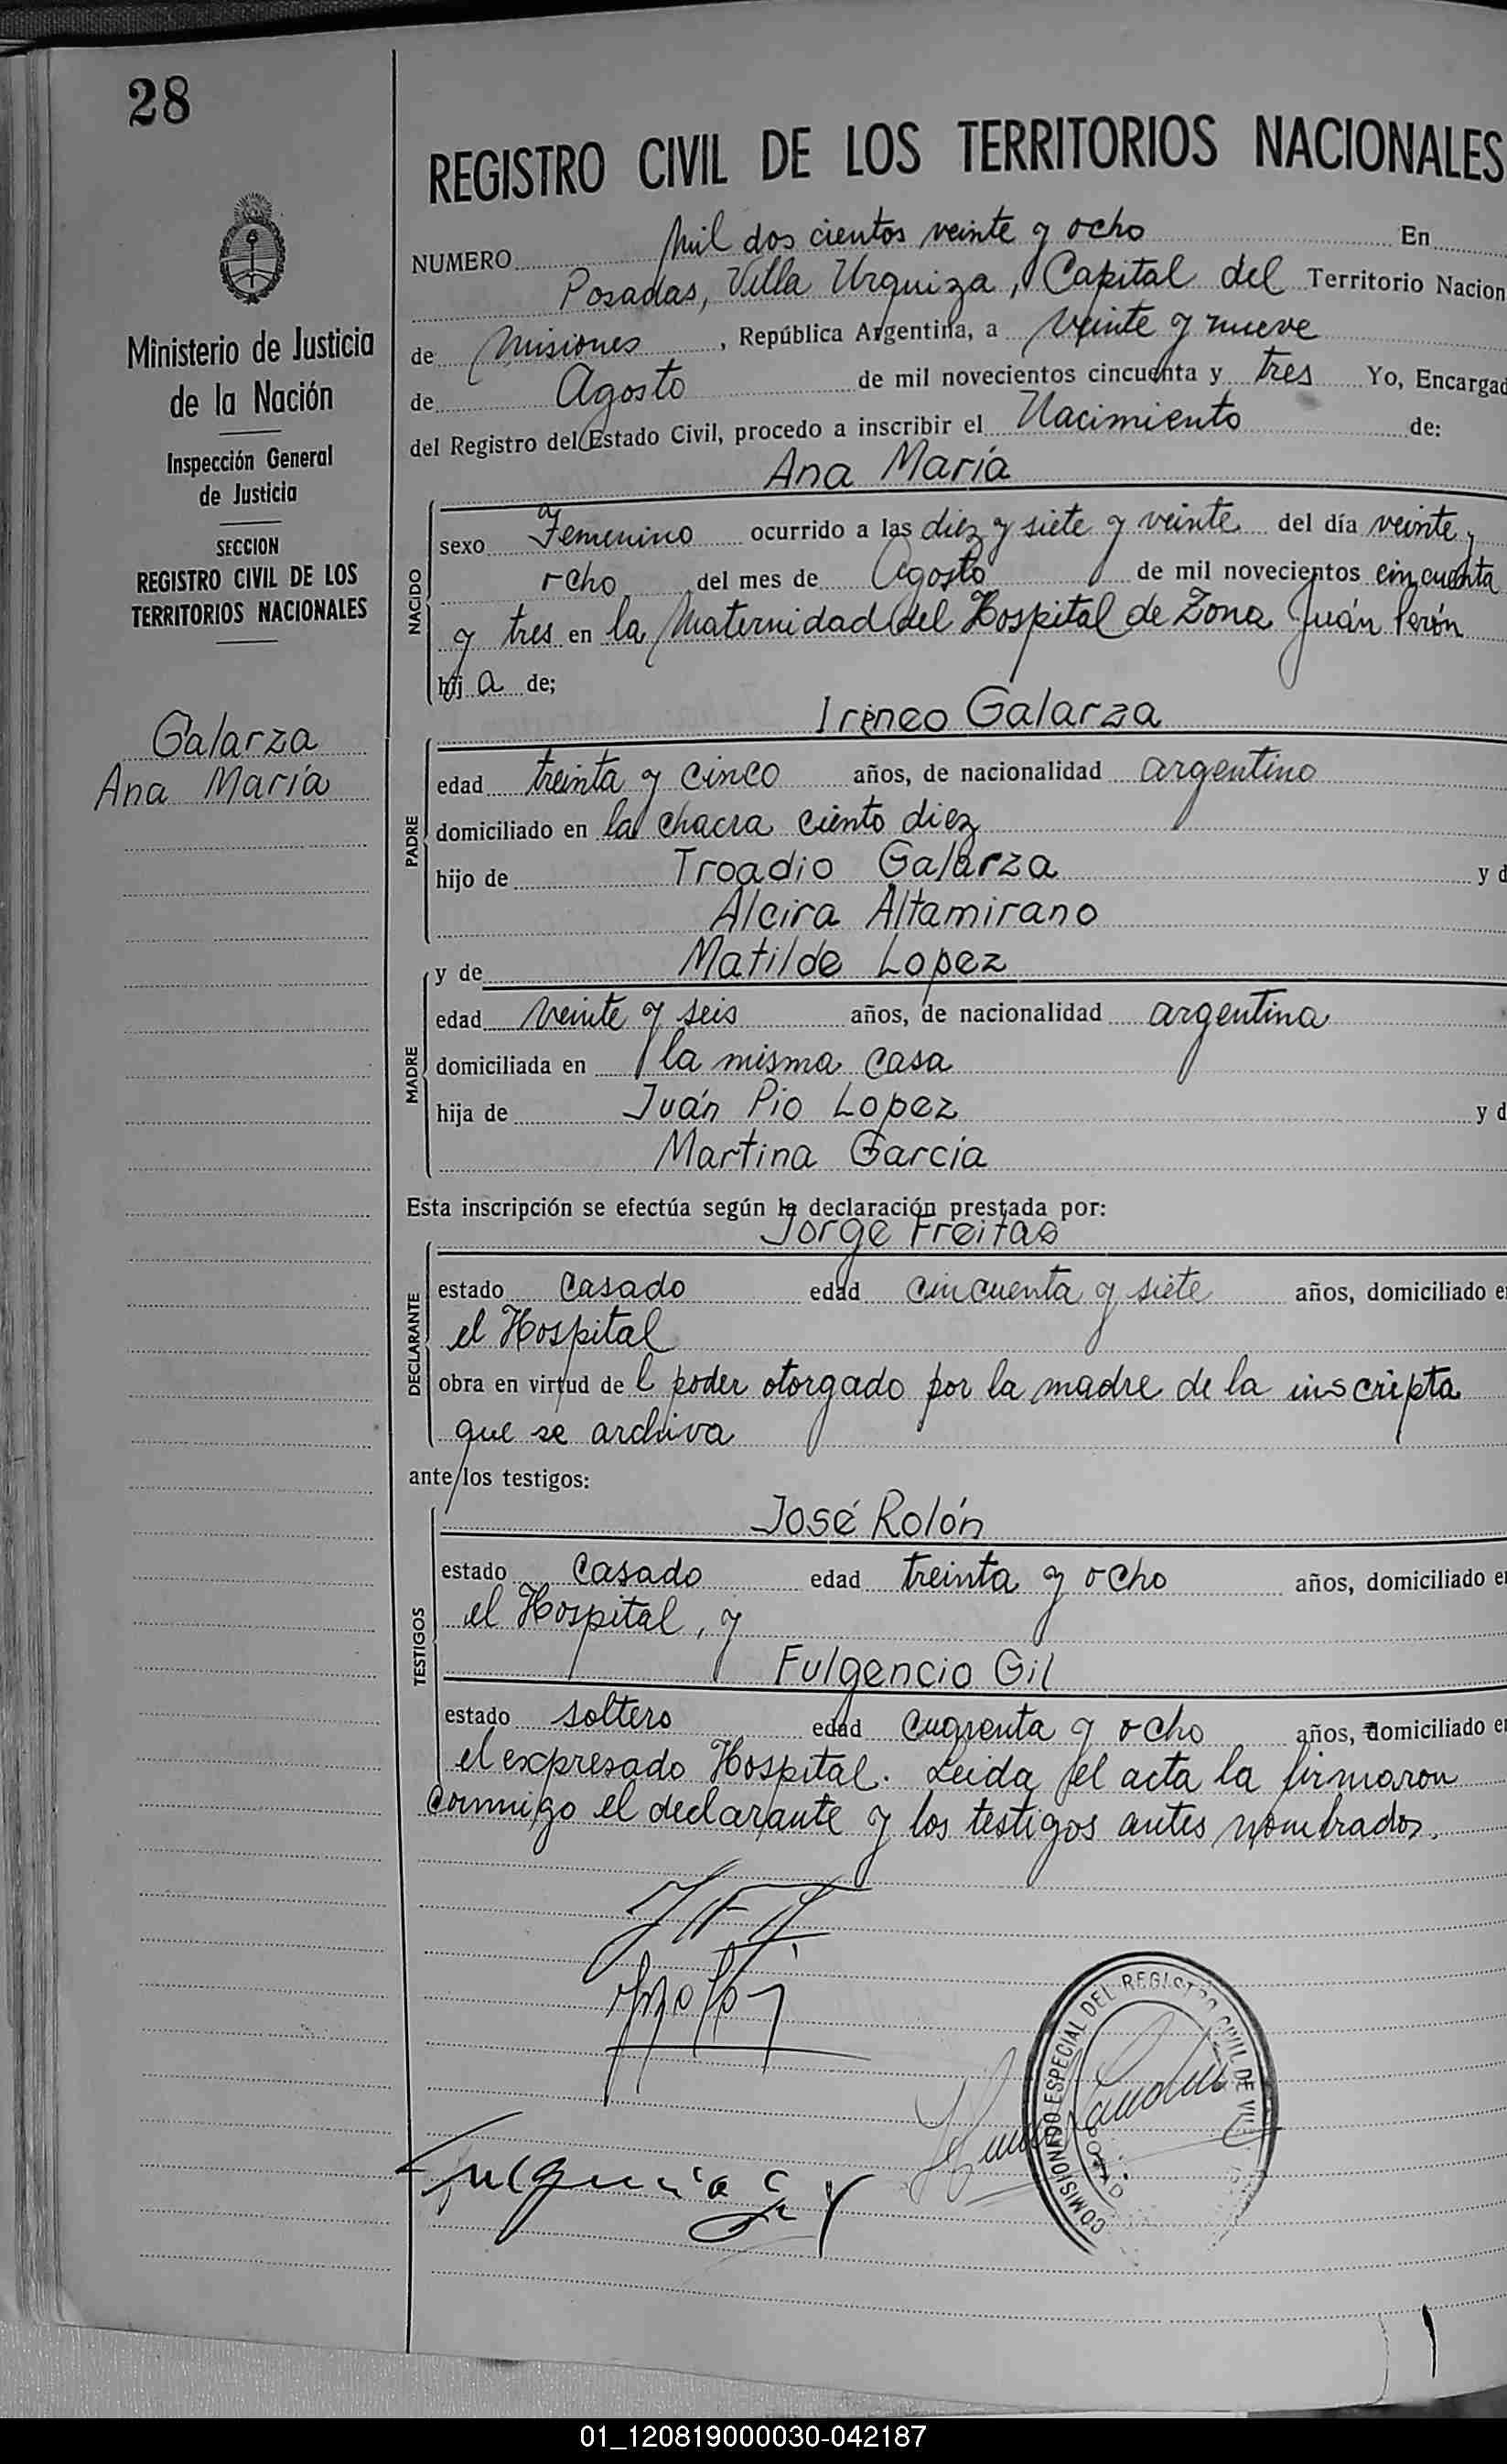 28
REGISTRO CIVIL DE LOS TERRITORIOS NACIONALES
Ministerio de Justicia
de la Nación
Inspección General
de Justicia
SECCION
REGISTRO CIVIL DE LOS
TERRITORIOS NACIONALES
Galarza
Ana María
NUMERO Mil dos cientos veinte y ocho En
Posadas, Villa Urquiza, Capital del Territorio Nacion
de Misiones, República Argentina, a veinte y nueve
de Agosto de mil novecientos cincuenta y tres Yo, Encargad
del Registro del Estado Civil, procedo a inscribir el Nacimiento de:
Ana María
NACIDO
sexo Femenino ocurrido a las diez y siete y veinte del día veinte y
ocho del mes de Agosto de mil novecientos cincuenta
y tres en la Maternidad del Hospital de Zona Juán Perón
hij a de;
Ireneo Galarza
PADRE
edad treinta y cinco años, de nacionalidad argentino
domiciliado en la chacra ciento diez
hijo de Troadio Galarza y d
Alcira Altamirano
MADRE
y de Matilde Lopez
edad veinte y seis años, de nacionalidad argentina
domiciliada en la misma casa
hija de Juán Pio Lopez y d
Martina García
Esta inscripción se efectúa según la declaración prestada por:
Jorge Freitas
DECLARANTE
estado casado edad cincuenta y siete años, domiciliado e
el Hospital
obra en virtud de l poder otorgado por la madre de la inscripta
que se archiva
ante los testigos:
José Rolón
TESTIGOS
estado casado edad treinta y ocho años, domiciliado e
el Hospital, y
Fulgencio Gil
estado soltero edad cuarenta y ocho años, domiciliado e
el expresado Hospital. Leida el acta la firmaron
conmigo el declarante y los testigos antes nombrados.
Fulgencio Gil
COMISIONADO ESPECIAL DEL REGISTRO CIVIL DE VIL
01_120819000030-042187